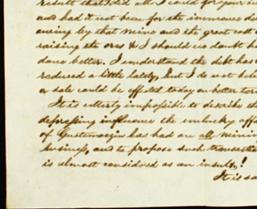 result that I did all I could for your in
and had it not been for the immense d
ening by that mine and the great cost o
raising the ores &c I should no doubt h
done better. I understand the debt has
reduced a little lately, but I do not bel
or sale could be effected today on better ter
It is utterly impossible to describe th
depressing influence the unlucky affa
of has had on all mini
business, and to propose such transaction
is almost considered as an insult!
It is so